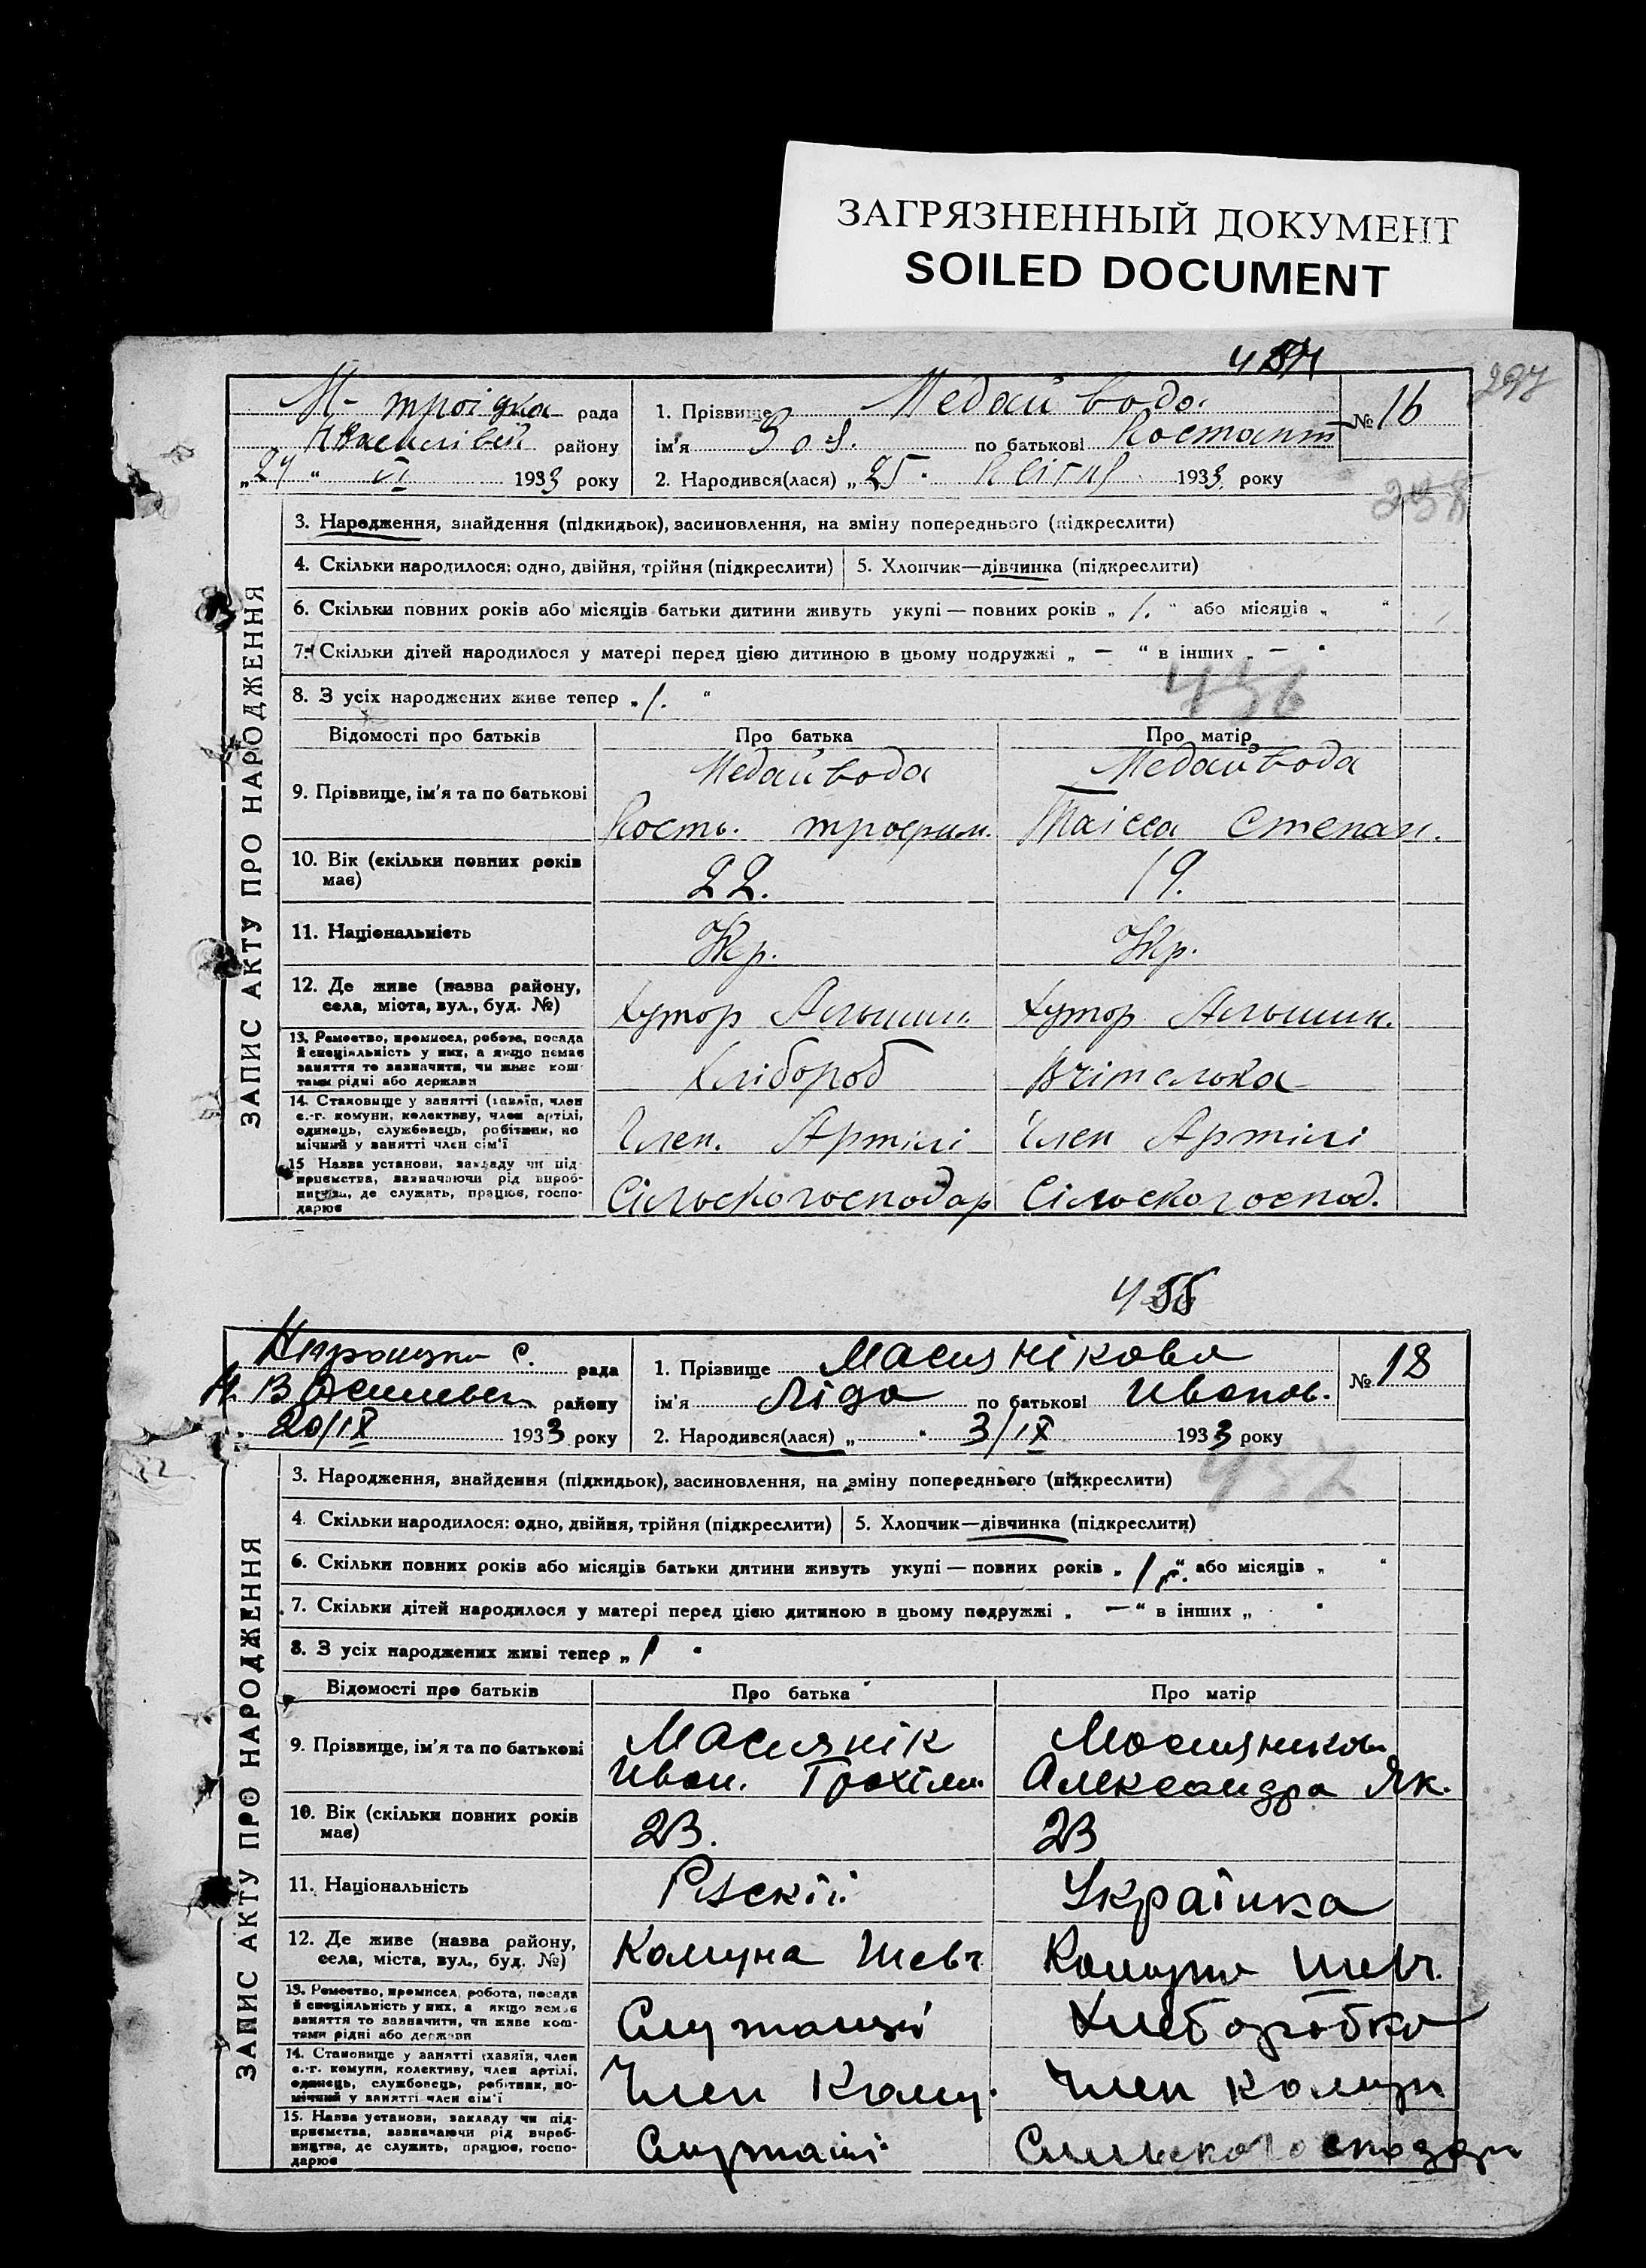 ЗАГРЯЗНЕННЫЙ ДОКУМЕНТ
SOILED DOCUMENT
297
рада
району
1933 року
1. Прізвище Медайвода
№ 16
ім'я Зоя. по батькові Костант
2. Народився(лася) „25“ 1933 року
ЗАПИС АКТУ ПРО НАРОДЖЕННЯ
3. Народження, знайдення (підкидьок), засиновлення, на зміну попереднього (підкреслити)
4. Скільки народилося: одно, двійня, трійня (підкреслити) 5. Хлопчик—дівчинка (підкреслити)
6. Скільки повних років або місяців батьки дитини живуть укупі — повних років „ 1. “ або місяців „ “
7. Скільки дітей народилося у матері перед цією дитиною в цьому подружжі „ — “ в інших „ — “
8. З усіх народжених живе тепер „ 1. “
456
Відомості про батьків Про батька Про матір
9. Прізвище, ім'я та по батькові Медайвода Медайвода
Кость. трофим. Таісса Степан.
10. Вік (скільки повних років має) 22. 19.
11. Національність Укр. Укр.
12. Де живе (назва району, села, міста, вул., буд. №) Хутор Хутор
13. Ремество, промисел, робота, посада й спеціяльність у них, а якщо немає заняття то зазначити, чи живе коштами рідні або держави Хлібороб Вчітелька
14. Становище у занятті (хазяїн, член с.-г. комуни, колективу, член артілі, одинець, службовець, робітник, помічний у занятті член сім'ї Член. Артілі Член Артілі
15 Назва установи, закладу чи підприємства, зазначаючи рід виробництва, де служить, працює, господарює Сільскогосподар Сільскогоспод.
455
рада
району
20/IX 1933 року
1. Прізвище Маслянікова
№ 18
ім'я Ліда по батькові Иванов.
2. Народився(лася) „ “ 3/IX 1933 року
457
ЗАПИС АКТУ ПРО НАРОДЖЕННЯ
3. Народження, знайдення (підкидьок), засиновлення, на зміну попереднього (підкреслити)
4. Скільки народилося: одно, двійня, трійня (підкреслити) 5. Хлопчик—дівчинка (підкреслити)
6. Скільки повних років або місяців батьки дитини живуть укупі — повних років „ 1 г. “ або місяців „ “
7. Скільки дітей народилося у матері перед цією дитиною в цьому подружжі „ — “ в інших „ “
8. З усіх народжених живі тепер „ 1 “
Відомості про батьків Про батька Про матір
9. Прізвище, ім'я та по батькові Маслянік Масляникова
Иван. Трохім. Александра Як.
10. Вік (скільки повних років має) 23. 23
11. Національність Рускїі Українка
12. Де живе (назва району, села, міста, вул., буд. №) Комуна Шевч Комуна Шевч.
13. Ремество, промисел, робота, посада й спеціяльність у них, а якщо немає заняття то зазначити, чи живе коштами рідні або держави Хлеборобка
14. Становище у занятті (хазяїн, член с.-г. комуни, колективу, член артілі, одинець, службовець, робітник, помічний у занятті член сім'ї Член Кому. Член комун
15. Назва установи, закладу чи підприємства, зазначаючи рід виробництва, де служить, працює, господарює